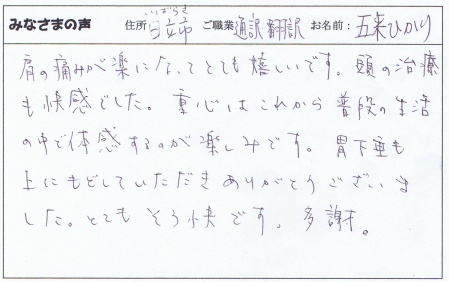 みなさまの声 住所 いばらき 日立市 ご職業 通訳 翻訳 お名前: 五来ひかり
肩の痛みが楽になってとても嬉しいです。頭の治療
も快感でした。重心はこれから普段の生活
の中で体感するのが楽しみです。胃下垂も
上にもどしていただきありがとうございま
した。とても そう快です。多謝。